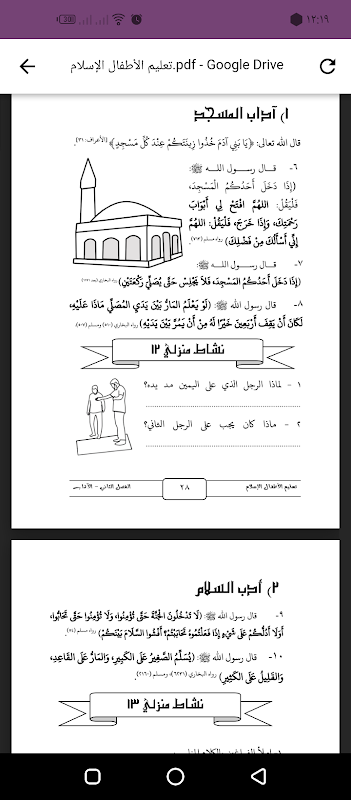 ١٢:١٩
تعليم الأطفال الإسلام.pdf - Google Drive
١) آداب المسجد
قال الله تعالى: ﴿يَا بَنِي آدَمَ خُذُوا زِينَتَكُمْ عِندَ كُلِّ مَسْجِدٍ﴾ [الأعراف: ٣١].
٦- قـال رسـول اللـه ﷺ:
(إِذَا دَخَلَ أَحَدُكُمُ الْمَسْجِدَ،
فَلْيَقُلْ: اللهُمَّ افْتَحْ لِي أَبْوَابَ
رَحْمَتِكَ، وَإِذَا خَرَجَ، فَلْيَقُلْ: اللهُمَّ
إِنِّي أَسْأَلُكَ مِنْ فَضْلِكَ) رواه مسلم (٧١٣).
٧- قـال رسـول اللـه ﷺ:
(إِذَا دَخَلَ أَحَدُكُمُ المَسْجِدَ، فَلاَ يَجْلِسْ حَتَّى يُصَلِّيَ رَكْعَتَيْنِ) رواه البخاري
٨- قال رسول الله ﷺ: (لَوْ يَعْلَمُ المَارُّ بَيْنَ يَدَيِ المُصَلِّي مَاذَا عَلَيْهِ،
لَكَانَ أَنْ يَقِفَ أَرْبَعِينَ خَيْرًا لَهُ مِنْ أَنْ يَمُرَّ بَيْنَ يَدَيْهِ) رواه البخاري (٥١٠)، ومسلم (٥٠٧).
نشاط منزلي ١٢
١ - لماذا الرجل الذي على اليمين مد يده؟
٢ - ماذا كان يجب على الرجل الثاني؟
تعليم الأطفال الإسلام
٢٨
الفصل الثاني - الآداب
٢) آداب السلام
٩- قال رسول الله ﷺ: (لَا تَدْخُلُونَ الْجَنَّةَ حَتَّى تُؤْمِنُوا، وَلَا تُؤْمِنُوا حَتَّى تَحَابُّوا،
أَوَلَا أَدُلُّكُمْ عَلَى شَيْءٍ إِذَا فَعَلْتُمُوهُ تَحَابَبْتُمْ؟ أَفْشُوا السَّلَامَ بَيْنَكُمْ) رواه مسلم (٥٤).
١٠- قال رسول الله ﷺ: (يُسَلِّمُ الصَّغِيرُ عَلَى الكَبِيرِ، وَالمَارُّ عَلَى القَاعِدِ،
وَالقَلِيلُ عَلَى الكَثِيرِ) رواه البخاري (٦٢٣١)، ومسلم (٢١٦٠).
نشاط منزلي ١٣